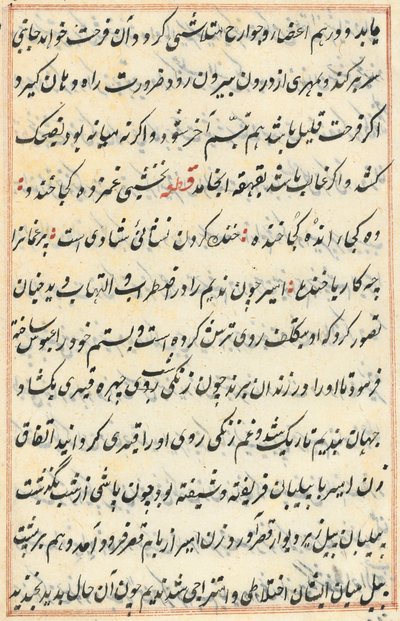 یابد و در هم اعضا و جوارح متلاشی کرد و آن فرحت خواهد جانبی
سر بر کند و بهری از درون بیرون رود و ضرورت راه دهان گیرد
اگر فرحت قلیل باشد هم تبسم آخر شود و اگر نه میانه بود بضحک
کشد و اگر غالب باشد بقهقهه انجامد قطعه نخشبی غمزده کجا خندد
ده کجا و انده کجا خنده خنده کردن نشانی شادی است پر غمانرا
چه کار با خنده امیر چون ندیم را در اضطراب و التهاب دید چنان
تصور کرد که او بتکلف روی ترش کرده است و بستم خود را عبوس ساخته
فرمود تا او را در زندان برند چون زنگی شب روی چهره قیری بکشاد
جهان بندیم تاریک شد و غم زنگی روی او را قیدی کردانید اتفاق
زن امیر با پیلبان فریفته و شیفته بود چون پاشی از شب بگذشت
پیلبان پیل زیر دیوار قصر آورد و زن امیر از بام قصر فرود آمد و هم بر پشت
پیل میان ایشان اختلاطی و امتزاجی شد ندیم چون آن حال بدید بخندید